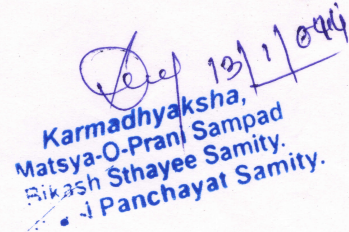 13/1/04
Karmadhyaksha,
Matsya-O-Prani Sampad
Bikash Sthayee Samity.
Panchayat Samity.